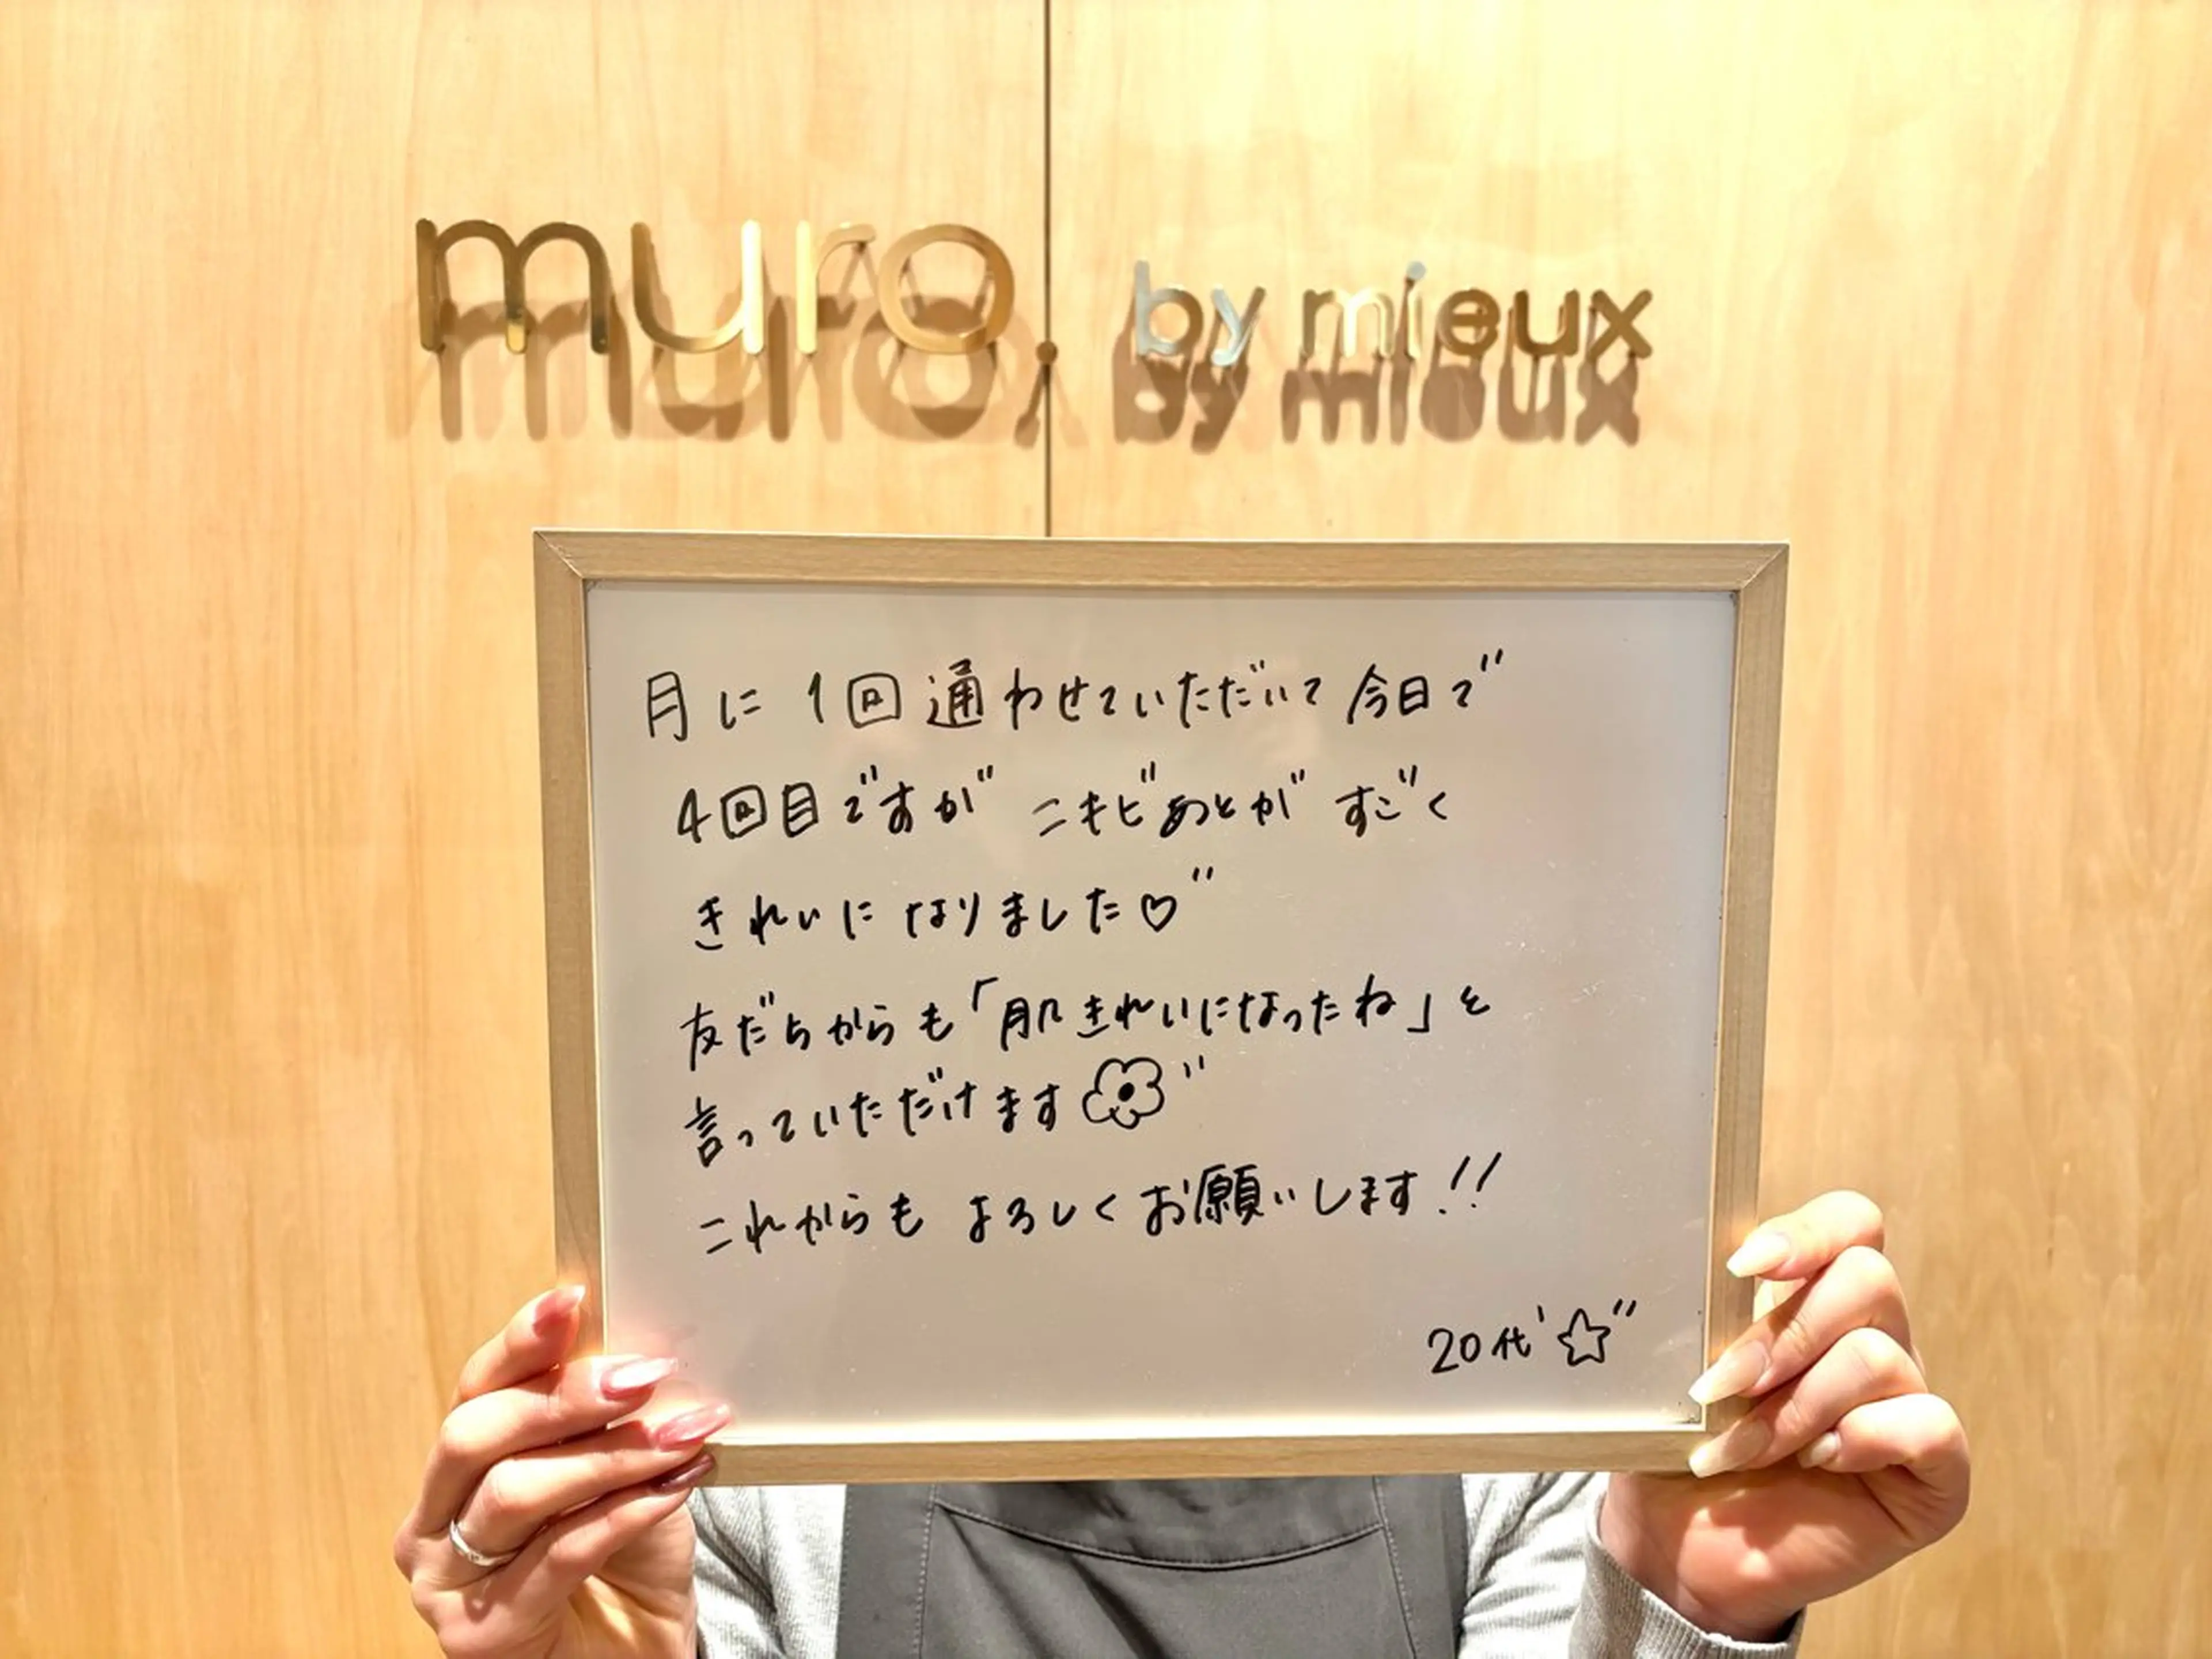 muro. by mieux
月に1回通わせていただいて今日で
4回目ですが ニキビあとが すごく
きれいになりました♡"
友だちからも「肌きれいになったね」と
言っていただけます"
これからも よろしくお願いします!!
20代'☆"